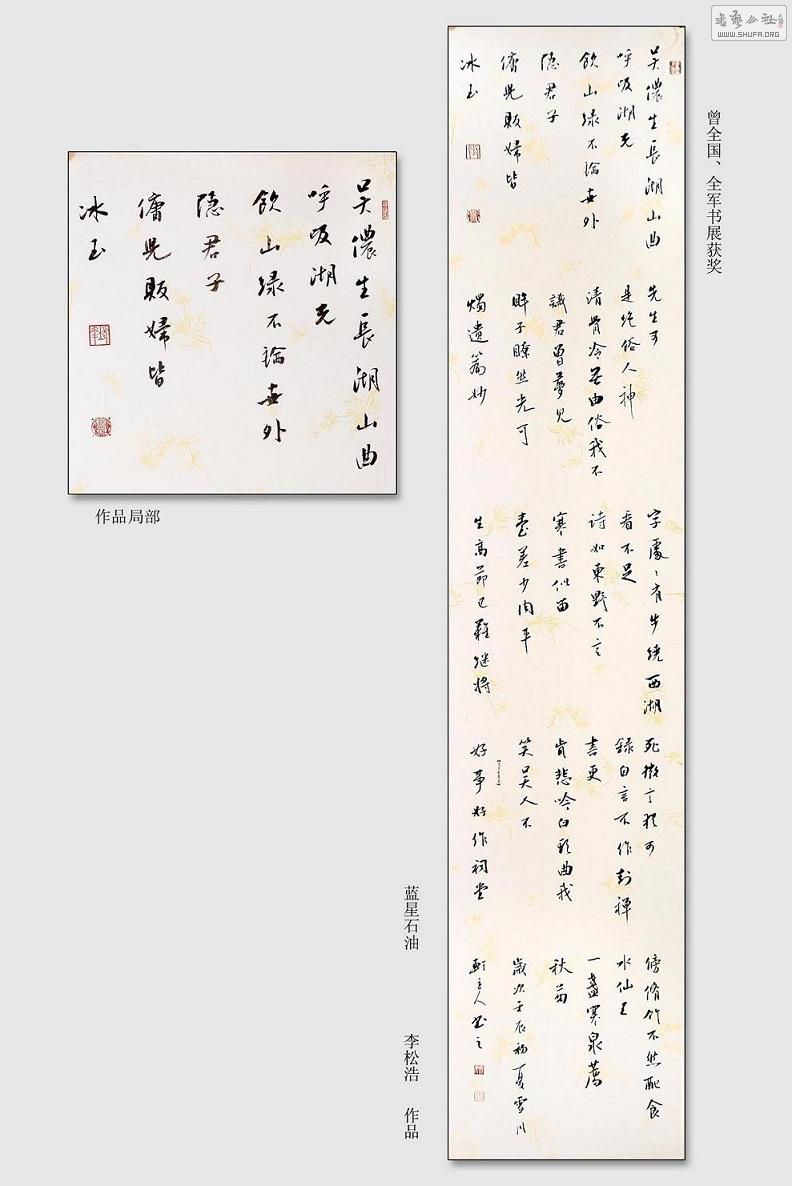 書藝公社
WWW.SHUFA.ORG
曾全国、全军书展获奖
吴儂生長湖山曲
呼吸湖光
飲山緑不論世外
隐君子
傭兒販婦皆
冰玉
先生可
是绝俗人神
清骨冷無由俗我不
識君曾夢見
眸子瞭然光可
燭遺篇妙
字處〻有步绕西湖
看不足
诗如東野不言
寒書似西
臺差少肉平
生高節已難继将
死微言猶可
録自言不作封禅
書更
肯悲吟白頭曲我
笑吴人不
好事好作祠堂
傍脩竹不然配食
水仙王
一盞寒泉薦
秋菊
歲次壬辰初夏雪川
軒主人書之
吴儂生長湖山曲
呼吸湖光
飲山緑不論世外
隐君子
傭兒販婦皆
冰玉
作品局部
蓝星石油
李松浩 作品